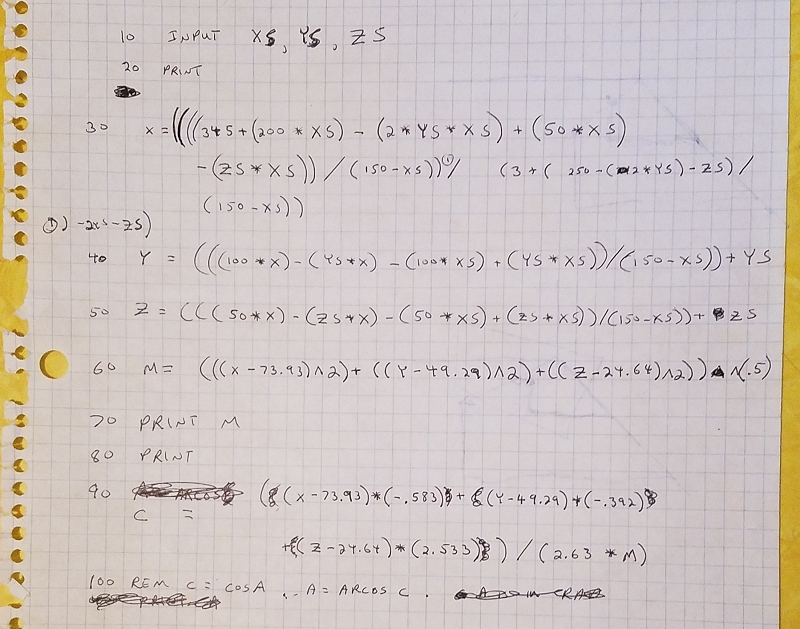 10 INPUT XS, YS, ZS
20 PRINT
30 X = ((((345+(200 * XS) - (2 * YS * XS) + (50 * XS)
-(ZS * XS)) / (150-XS))① / (3 + ( 250-( 2*YS) - ZS) /
(150-XS))
①) -2YS-ZS)
40 Y = (((100 * X) - (YS*X) - (100* XS) + (YS * XS))/(150-XS)) + YS
50 Z = (((50*X) - (ZS*X) - (50 * XS) + (ZS * XS))/(150-XS)) + ZS
60 M = (((X - 73.93)∧2)+ ((Y-49.29)∧2)+((Z-24.64)∧2)) ∧(.5)
70 PRINT M
80 PRINT
90 ((X-73.93)*(-.583)+(Y-49.29)*(-.392)
C =
+(Z-24.64)*(2.533)) / (2.63 * M)
100 REM C = COSA ∴ A = ARCOS C.